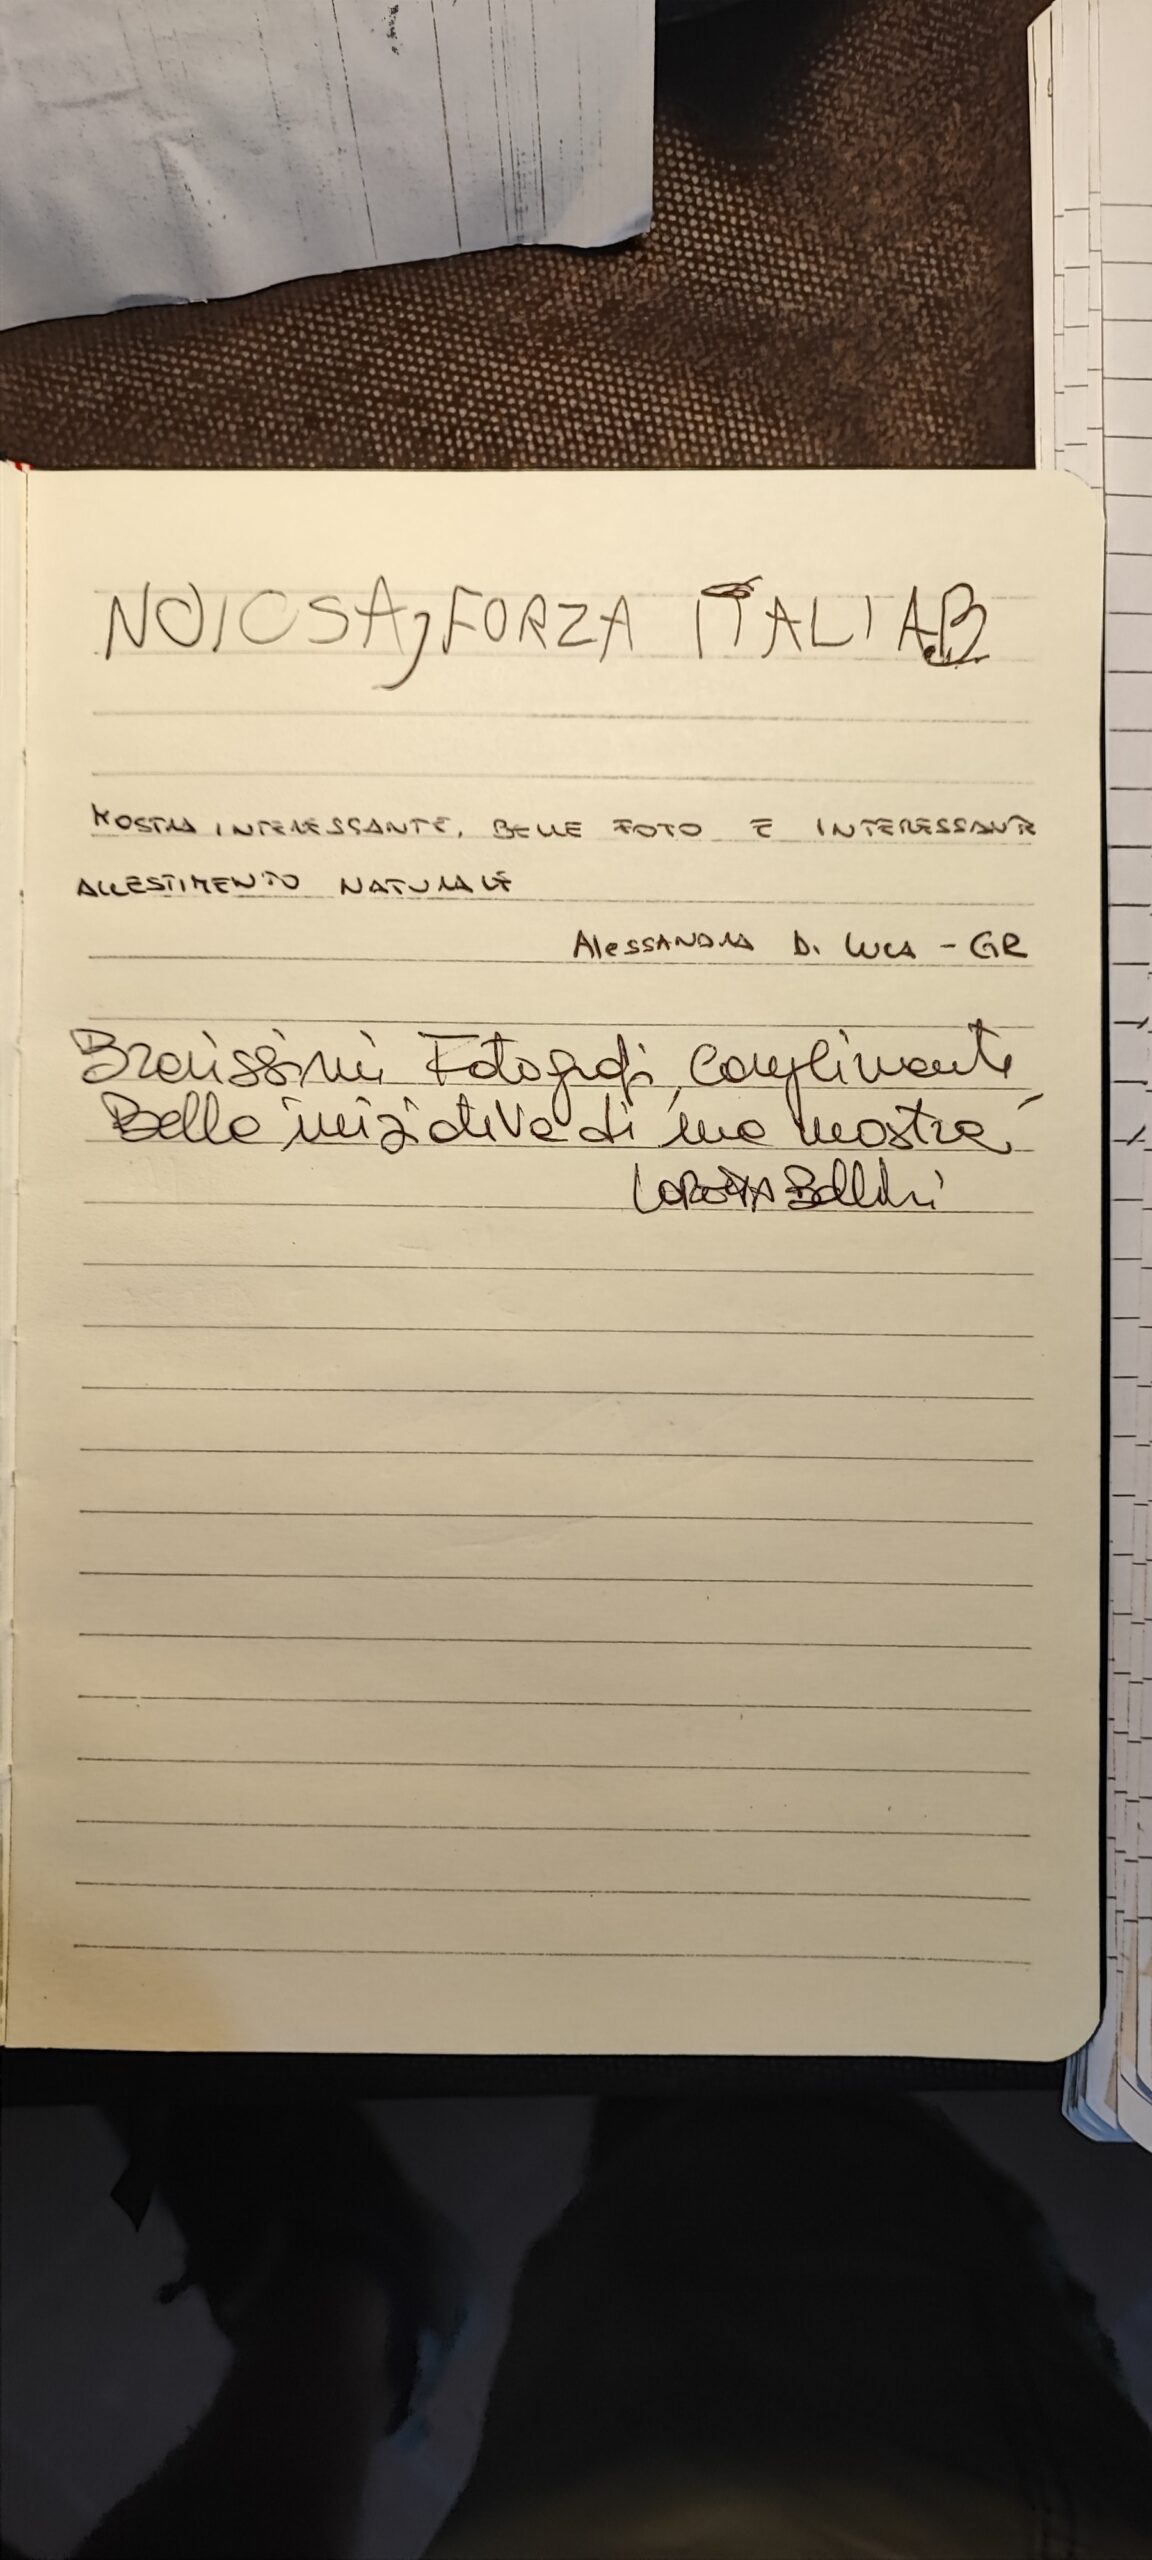 NOIOSA, FORZA ITALIA B
MOSTRA INTERESSANTE, BELLE FOTO E INTERESSANTE
ALLESTIMENTO NATURALE
ALESSANDRA DI LUCA - GR
Bravissimi Fotografi, Complimenti
Bella iniziativa di una mostra
LORETTA